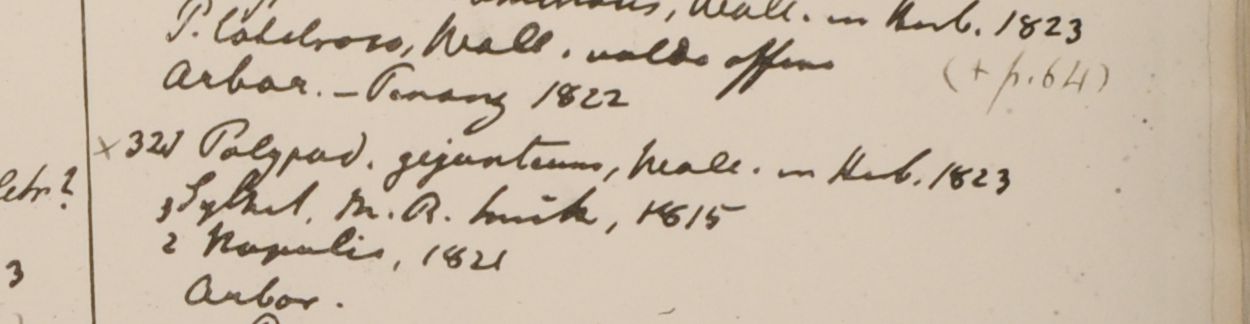 Wall. in Herb. 1823
P. Wall. valde affine
(+ p. 64)
Arbor. – Penang 1822
x 321 Polypod. giganteum, Wall. in Herb. 1823
Letr?
Sylhet, M. R. Smith, 1815
2 Napalia, 1821
3
Arbor.